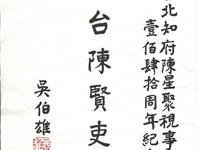 北知府陳星聚視事
壹佰肆拾周年紀
台陳賢吏
吳伯雄